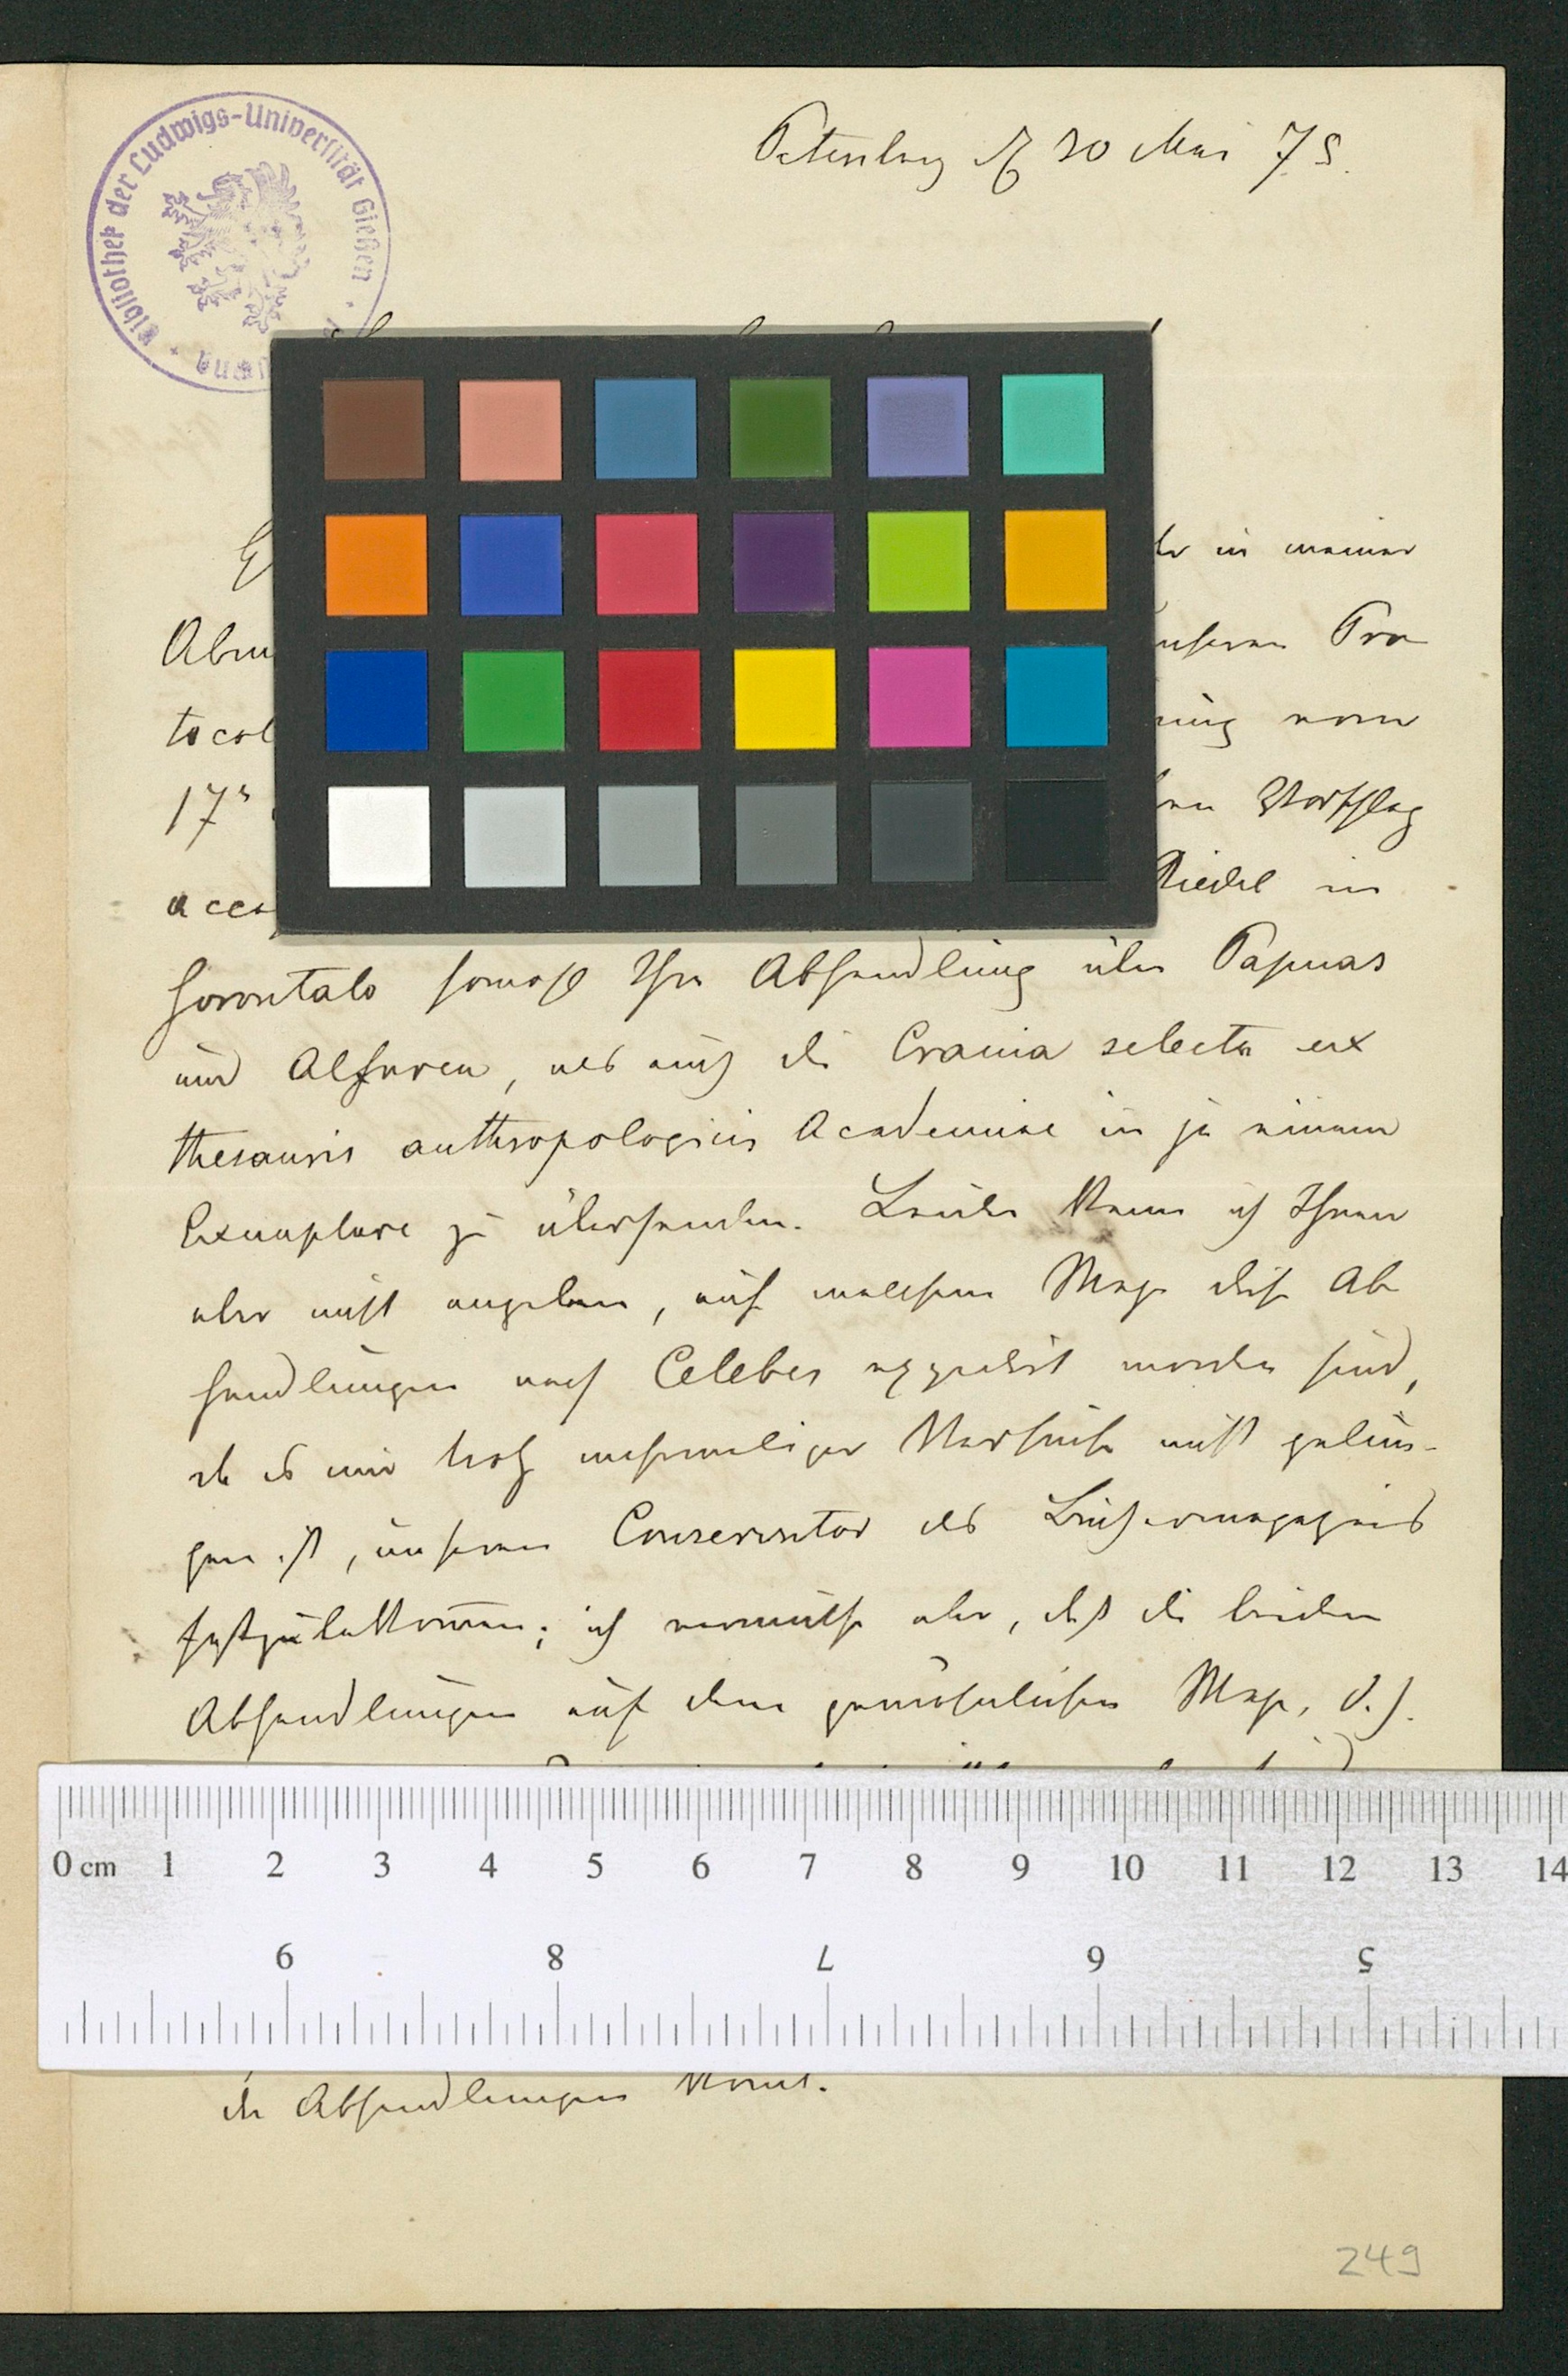 Bibliothek der Ludwigs-Universität Gießen
Petersburg d. 30 Mai 75.
in meiner
unseren Pro
tocol
17n
Vorschlag
Riedel in
Gorontalo sowohl Ihre Abhandlung über Papuas
und Alfuren, als auch die Crania selecta ex
thesauris anthropologicis Academiae in je einem
Exemplare zu übersenden. Leider kann ich Ihnen
aber nicht angeben, auf welchem Wege diese Ab
handlungen nach Celebes expedirt worden sind,
da es mir trotz mehrmaliger Versuche nicht gelun-
gen ist, unseren Conservator des Büchermagazins
festzubekommen; ich vermuthe aber, daß die beiden
Abhandlungen auf dem gewöhnlichen Wege, d. h.
0 cm 1 2 3 4 5 6 7 8 9 10 11 12 13 14
9 8 7 6 5
der Abhandlungen kommt.
249